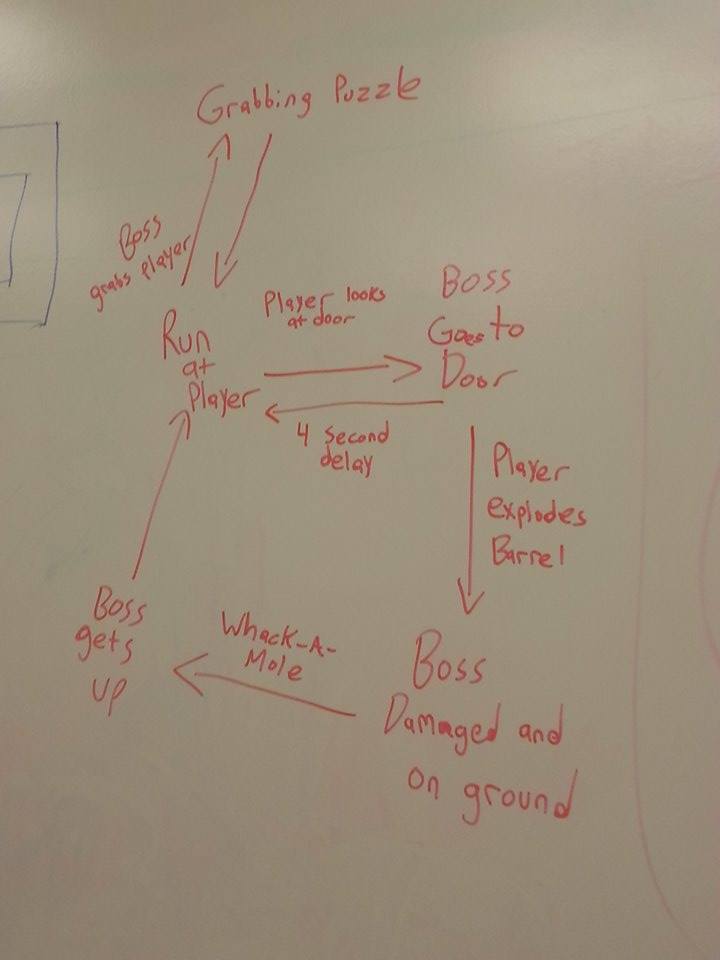 Grabbing Puzzle
Boss
grabs player
Run
at
Player
Player looks
at door
Boss
Goes to
Door
4 second
delay
Player
explodes
Barrel
Boss
gets
up
Whack-A-
Mole
Boss
Damaged and
on ground